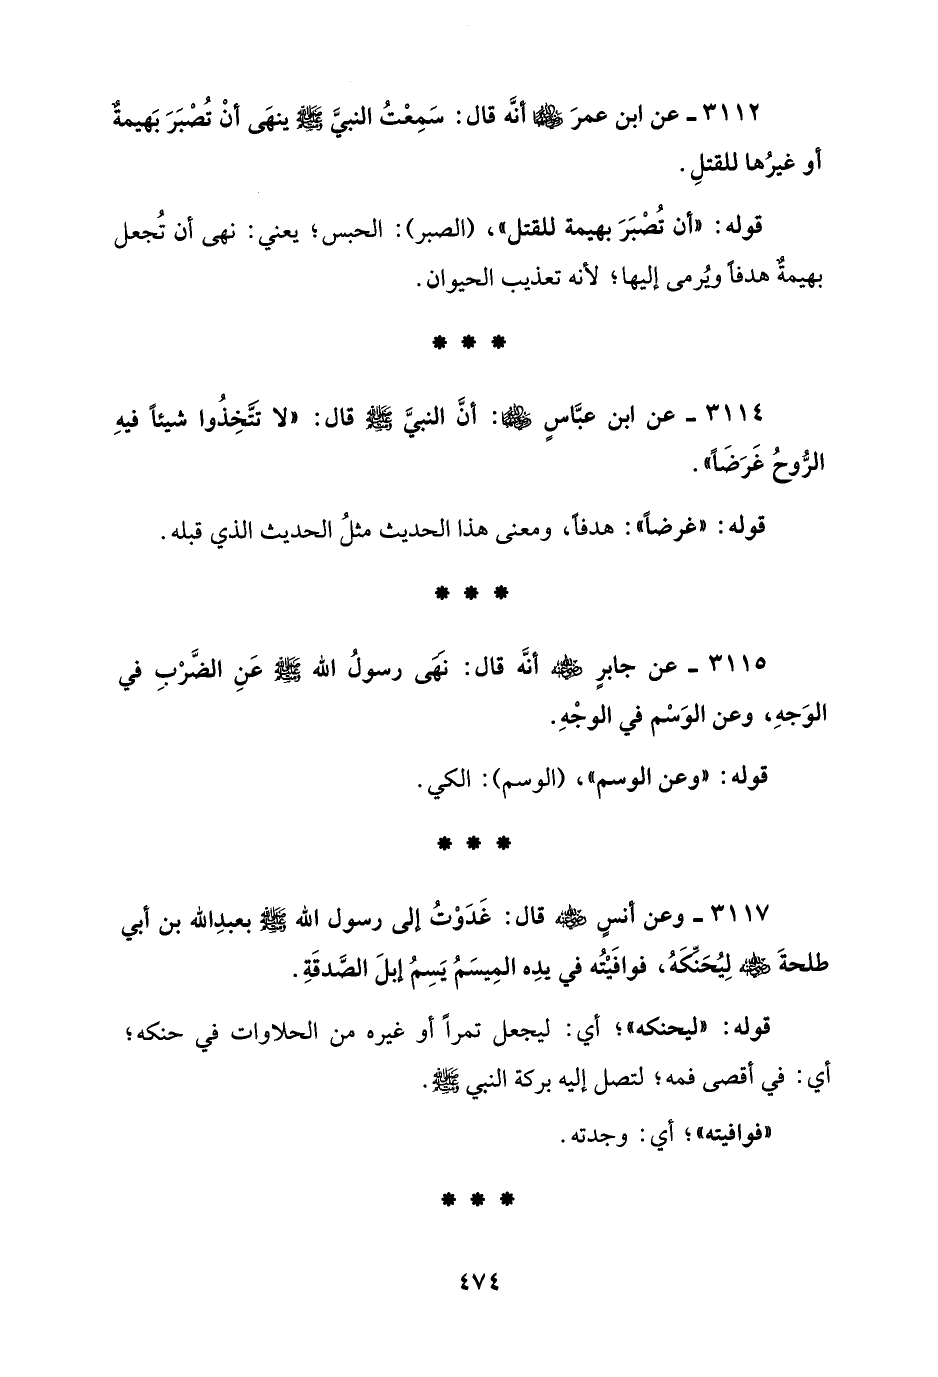 ٣١١٢ ـ عن ابن عمرَ ﵄ أنَّه قال: سَمِعْتُ النبيَّ ﷺ ينهَى أنْ تُصْبَرَ بَهيمةٌ
أو غيرُها للقتلِ.
قوله: «أن تُصْبَرَ بهيمة للقتل»، (الصبر): الحبس؛ يعني: نهى أن تُجعل
بهيمةٌ هدفاً ويُرمى إليها؛ لأنه تعذيب الحيوان.
* * *
٣١١٤ ـ عن ابن عبَّاسٍ ﵄: أنَّ النبيَّ ﷺ قال: «لا تتَّخِذُوا شيئاً فيهِ
الرُّوحُ غَرَضَاً».
قوله: «غرضاً»: هدفاً، ومعنى هذا الحديث مثلُ الحديث الذي قبله.
* * *
٣١١٥ ـ عن جابرٍ ﵁ أنَّه قال: نهَى رسولُ الله ﷺ عَنِ الضَّرْبِ في
الوَجهِ، وعن الوَسْم في الوجْهِ.
قوله: «وعن الوسم»، (الوسم): الكي.
* * *
٣١١٧ ـ وعن أنسٍ ﵁ قال: غَدَوْتُ إلى رسول الله ﷺ بعبدِالله بن أبي
طلحةَ ﵁ لِيُحَنِّكَهُ، فوافَيْتُه في يدِه المِيسَمُ يَسِمُ إبلَ الصَّدقَةِ.
قوله: «ليحنكه»؛ أي: ليجعل تمراً أو غيره من الحلاوات في حنكه؛
أي: في أقصى فمه؛ لتصل إليه بركة النبي ﷺ.
«فوافيته»؛ أي: وجدته.
* * *
٤٧٤